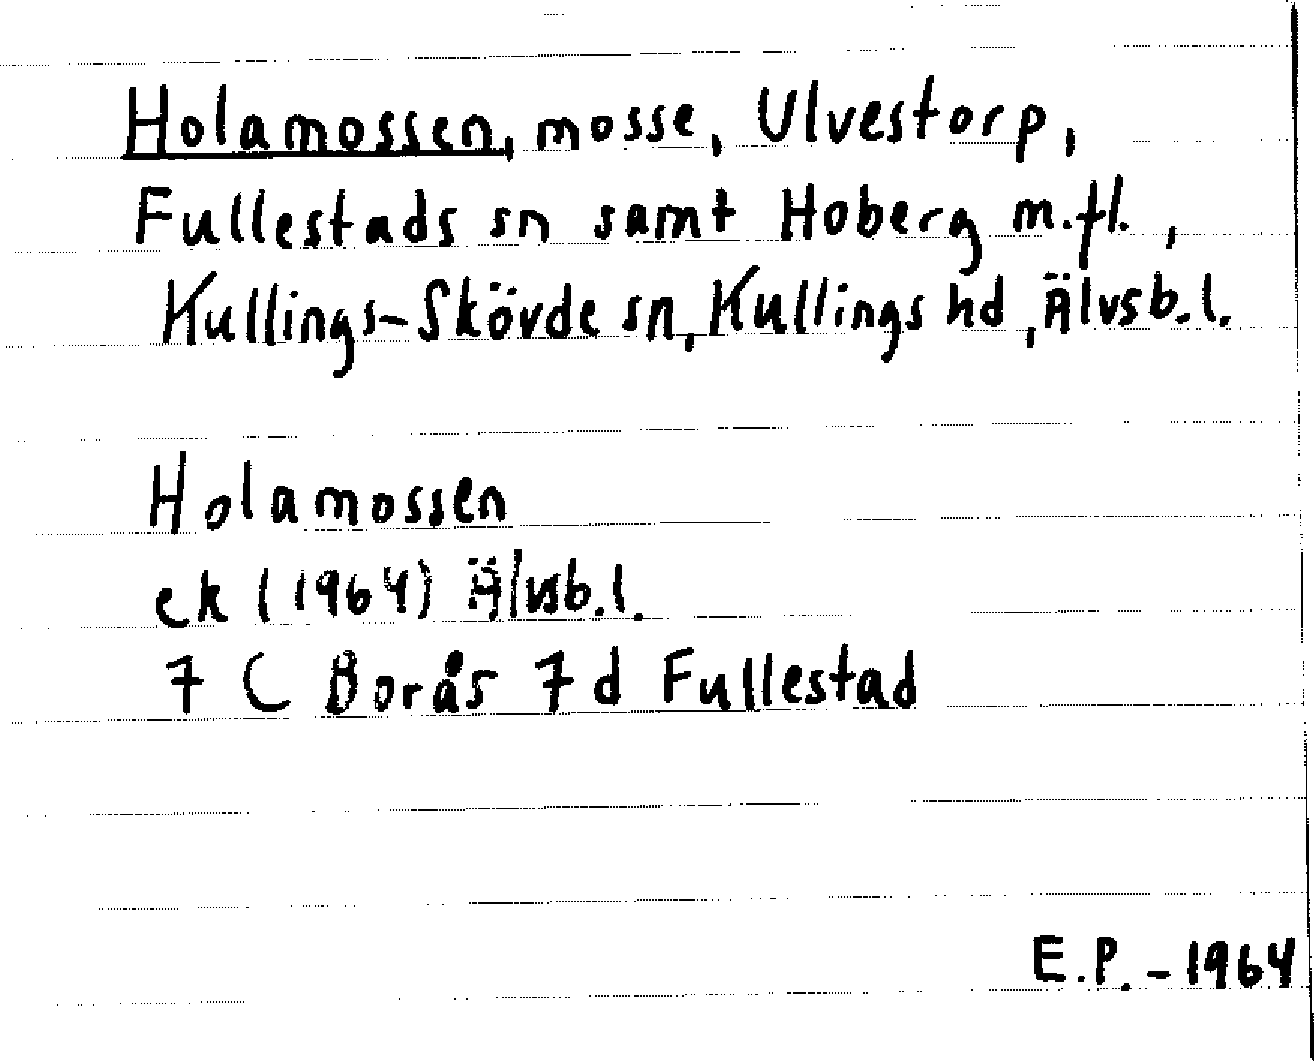 Holamossen, mosse, Ulvestorp,
Fullestads sn samt Hoberg m.fl.,
Kullings-Skövde sn, Kullings hd, Älvsb.l.
Holamossen
ek (1964) Älvsb.l.
7 C Borås 7 d Fullestad
E.P. - 1964